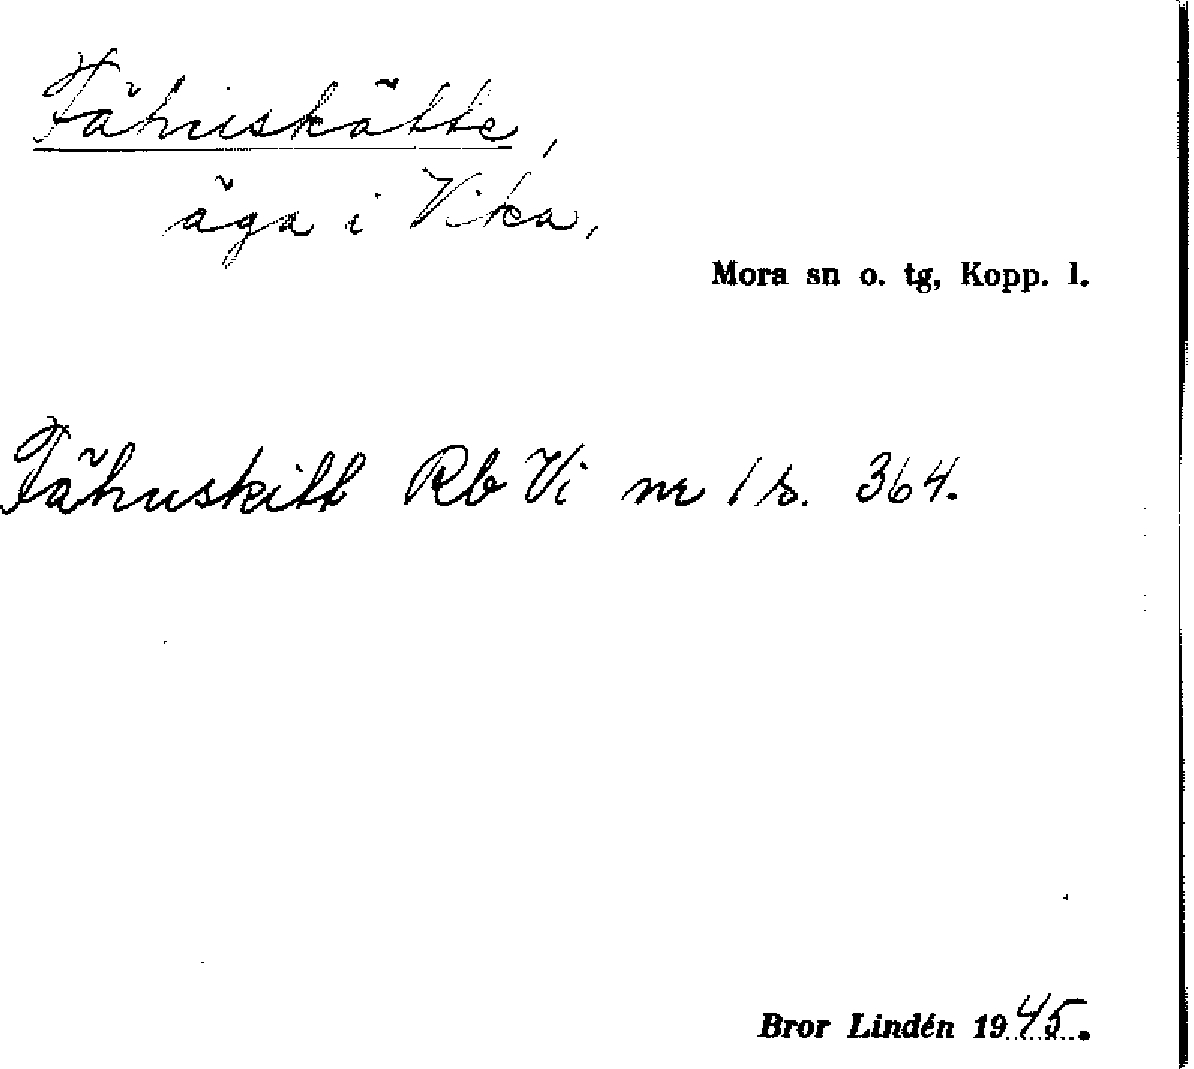 Fähuskätte,
äga i Vika,
Mora sn o. tg, Kopp. l.
Fähuskitt Rb Vi nr 1 s. 364.
Bror Lindén 1945.